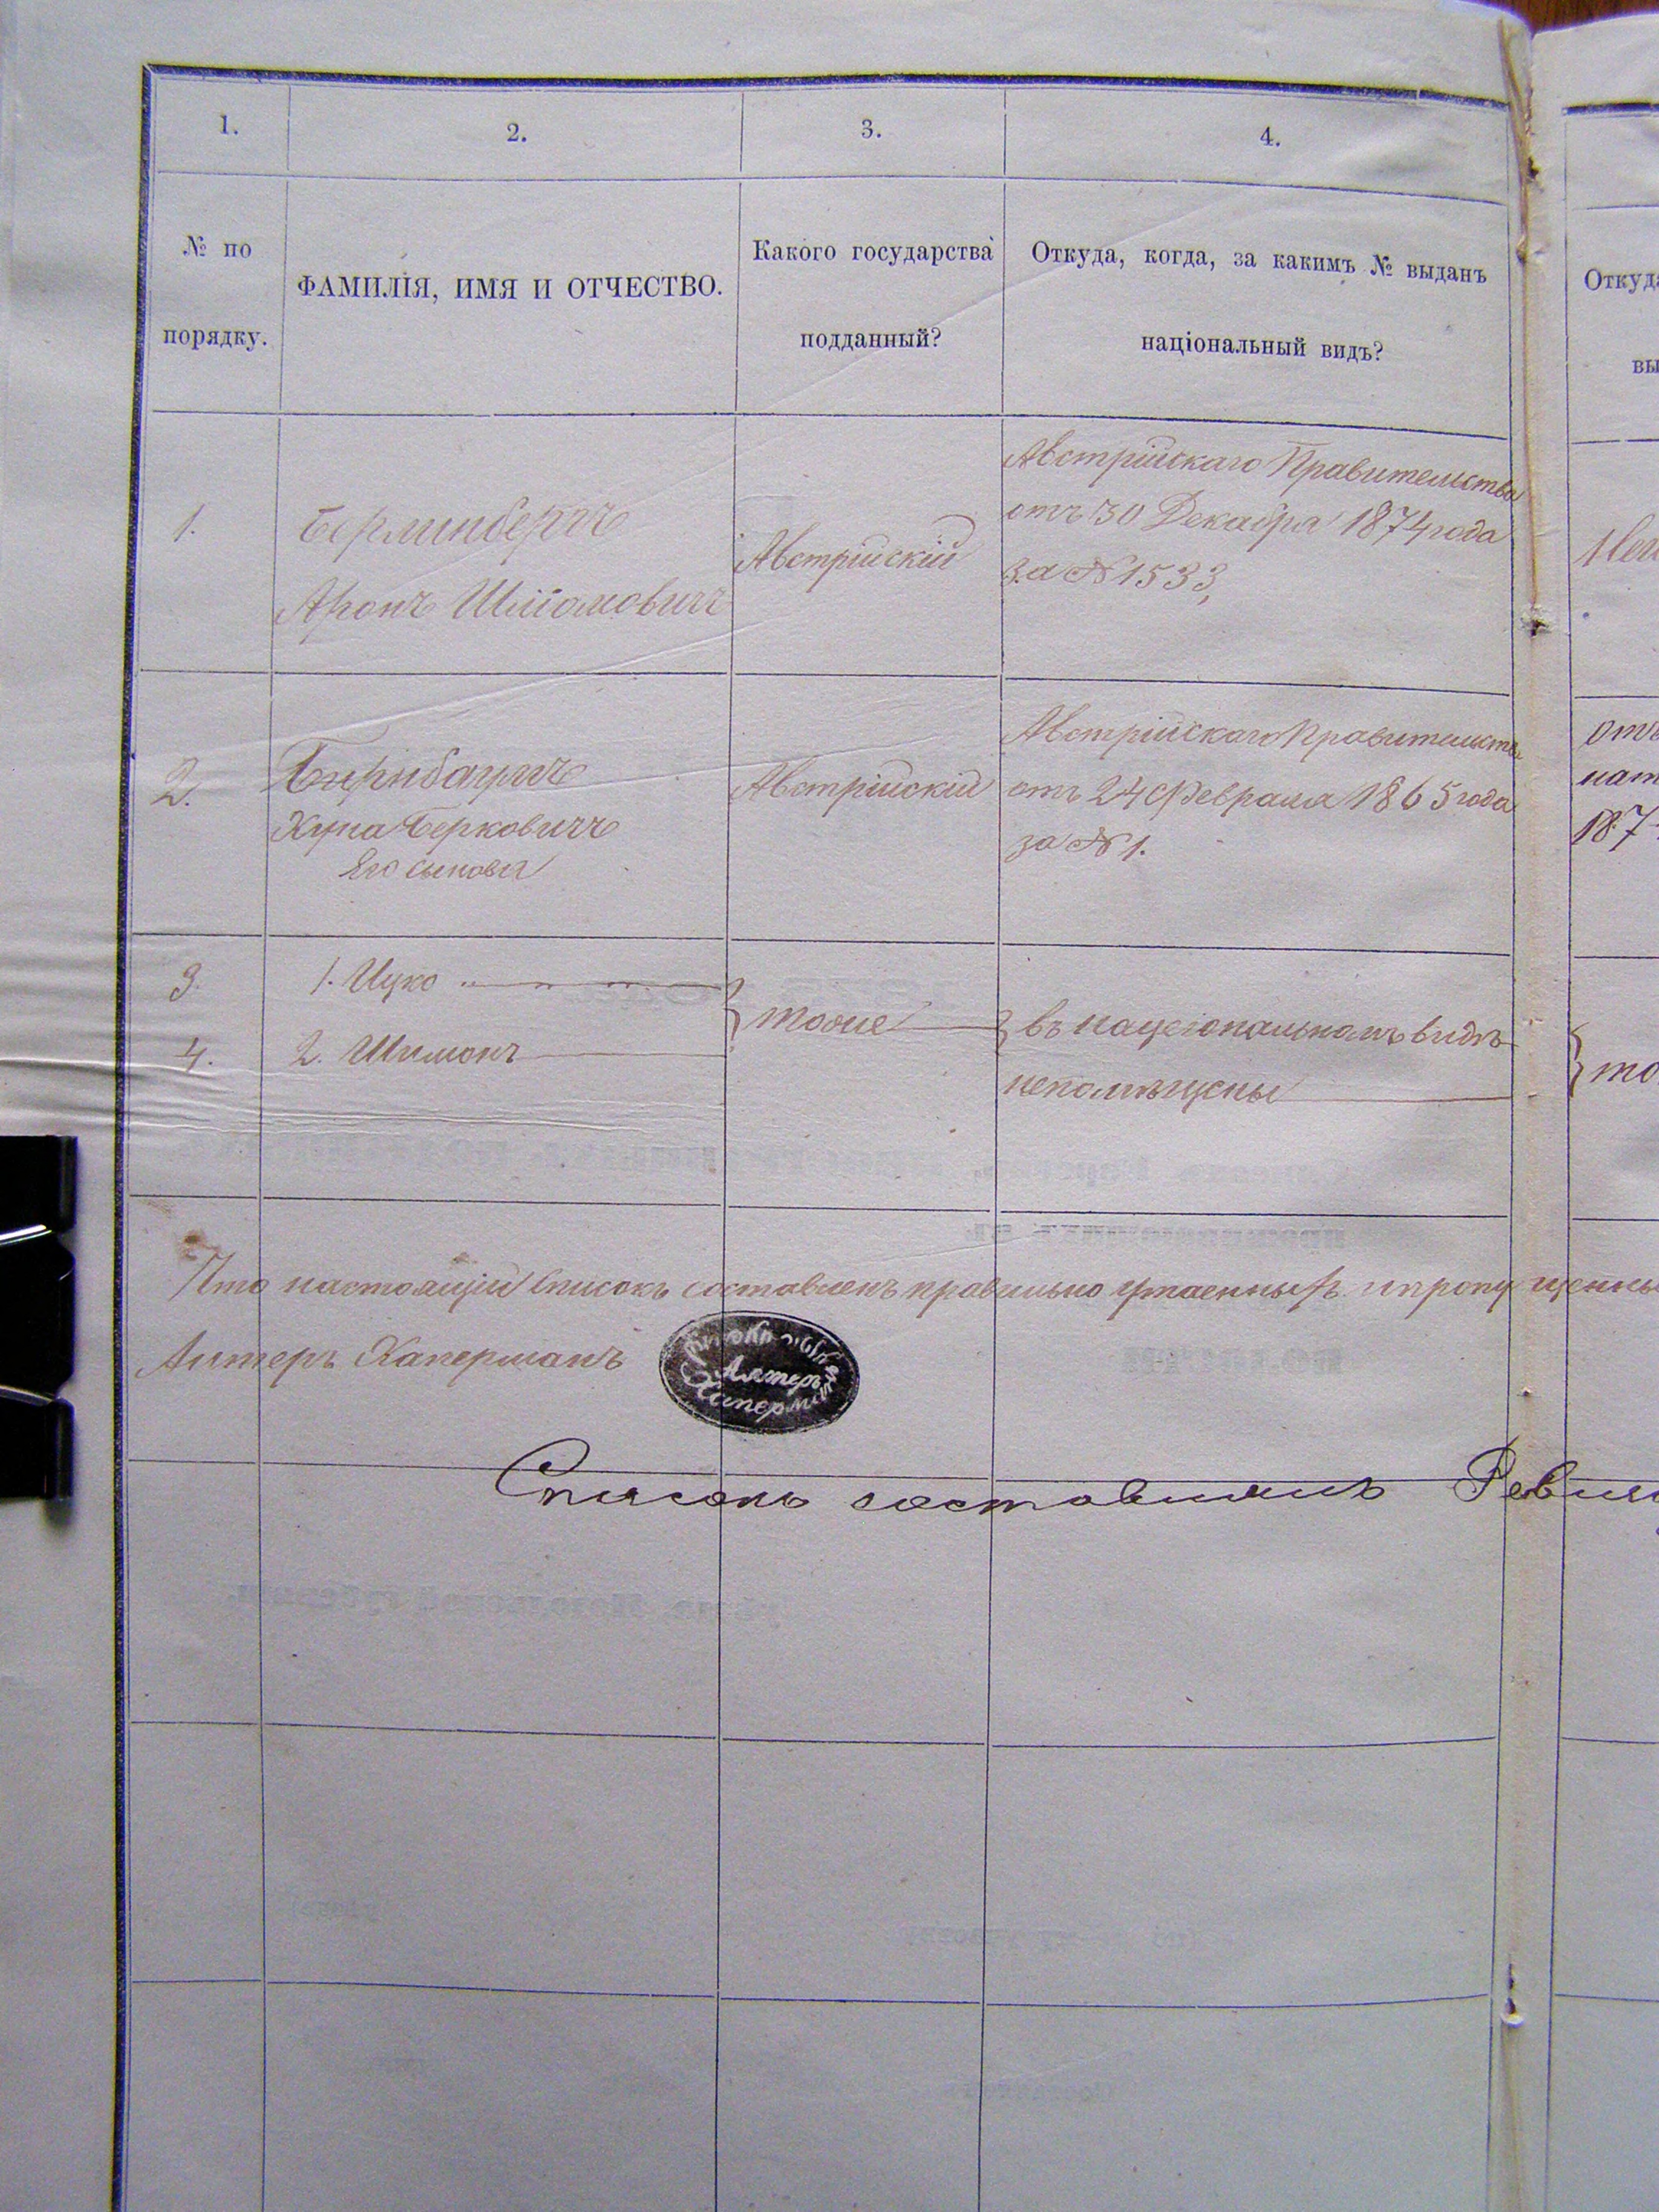 1.
2.
3.
4.
№ по
порядку.
ФАМИЛІЯ, ИМЯ И ОТЧЕСТВО.
Какого государства
подданный?
Откуда, когда, за какимъ № выданъ
національный видъ?
Откуда
вы
1.
Берлинбергъ
Аронъ Шліомовичъ
Австрійскій
Австрійскаго Правительства
отъ 30 Декабря 1874 года
за № 1533,
2.
Хуна Берковичъ
Его сыновья
Австрійскій
Австрійскаго Правительства
отъ 24 Февраля 1865 года
за № 1.
отъ
нат
187
3.
1. Ицко
4.
2. Шимонъ
тоже
въ національномъ видѣ
непомѣщены
то
Что настоящій Списокъ составленъ правильно утаенныхъ и пропущенны
Алтеръ Каперманъ
Алтеръ
Каперманъ
Списокъ составлялъ